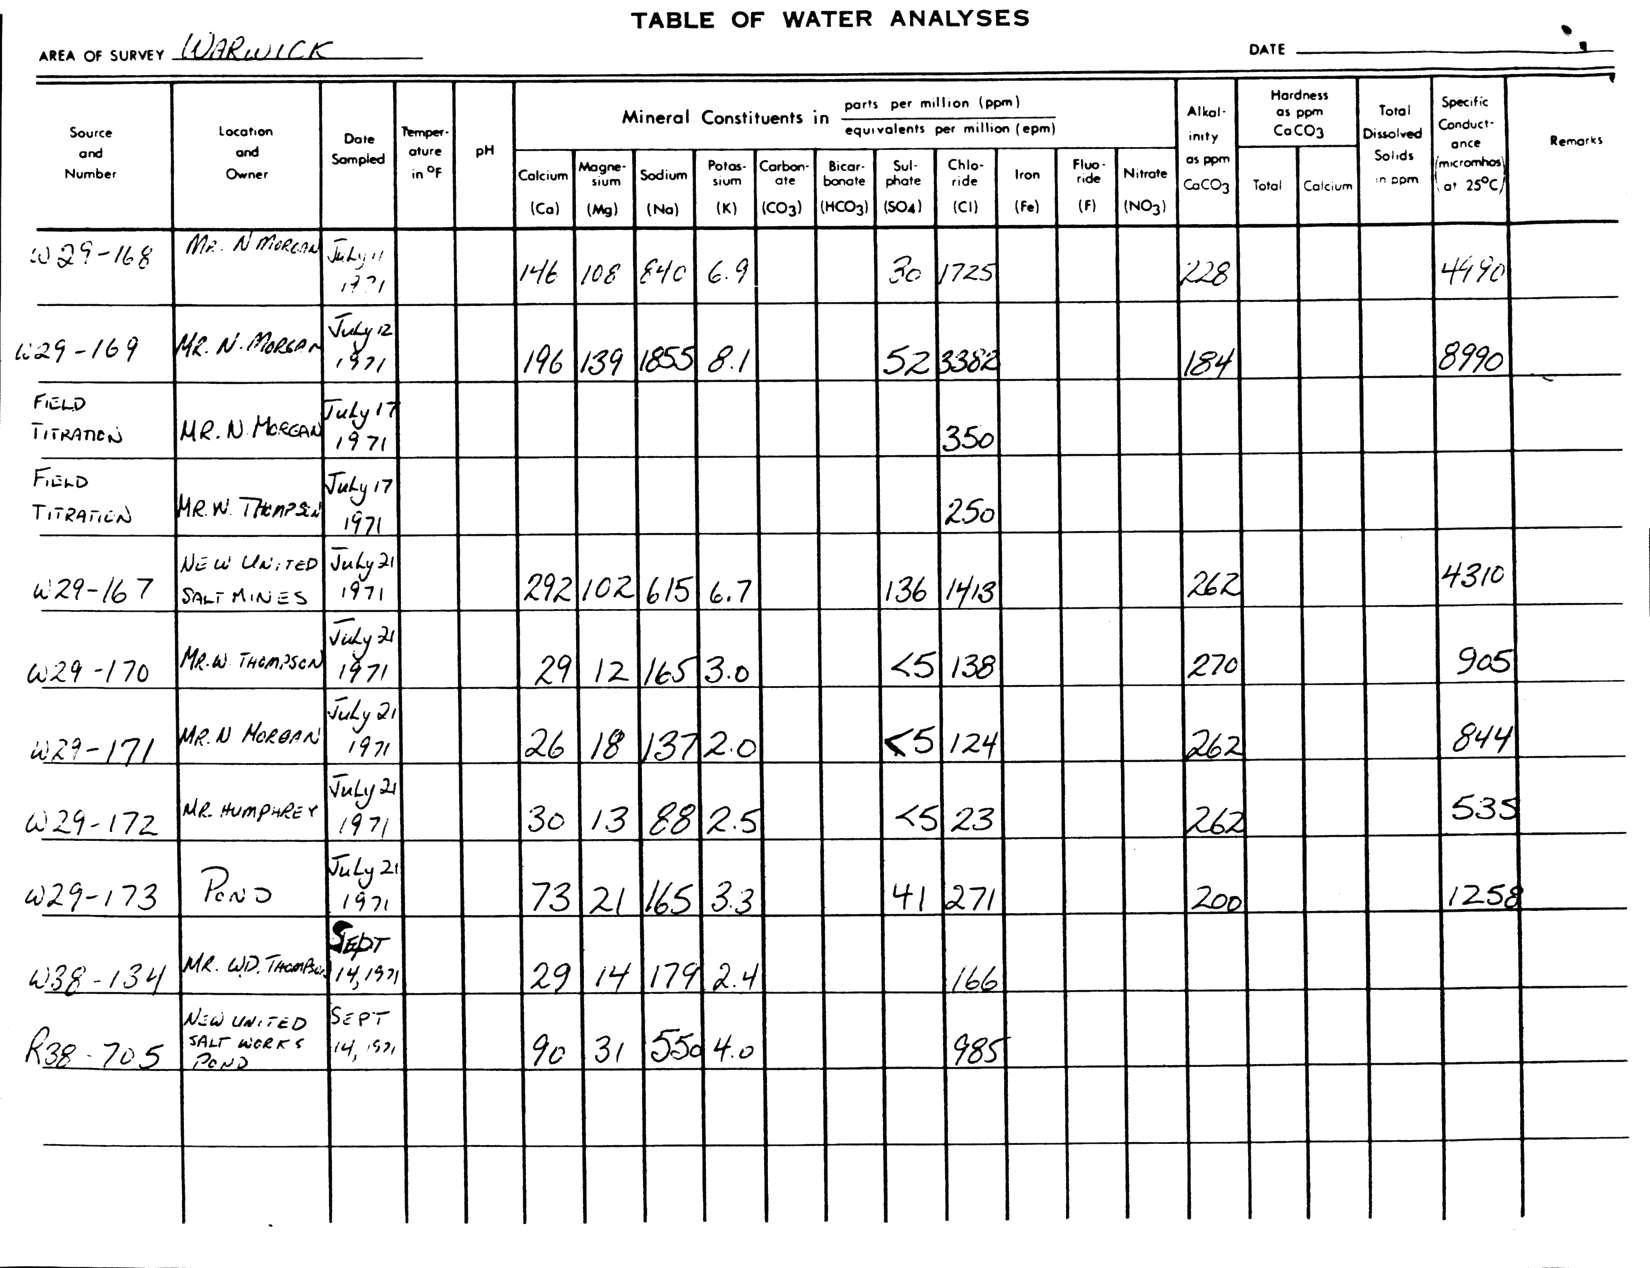 TABLE OF WATER ANALYSES
AREA OF SURVEY WARWICK DATE
Source and Number
Location and Owner
Date Sampled
Temper-ature in °F
pH
Mineral Constituents in parts per million (ppm) / equivalents per million (epm)
Calcium (Ca)
Magne-sium (Mg)
Sodium (Na)
Potas-sium (K)
Carbon-ate (CO3)
Bicar-bonate (HCO3)
Sul-phate (SO4)
Chlo-ride (Cl)
Iron (Fe)
Fluo-ride (F)
Nitrate (NO3)
Alkal-inity as ppm CaCO3
Hardness as ppm CaCO3
Total
Calcium
Total Dissolved Solids in ppm
Specific Conduct-ance (micromhos at 25°C)
Remarks
W29-168 MR. N MORGAN July 11 1971 146 108 840 6.9 30 1725 228 4990
W29-169 MR. N. MORGAN July 12 1971 196 139 1855 8.1 52 3382 184 8990
FIELD TITRATION MR. N. MORGAN July 17 1971 350
FIELD TITRATION MR. W. THOMPSON July 17 1971 250
W29-167 NEW UNITED SALT MINES July 21 1971 292 102 615 6.7 136 1413 262 4310
W29-170 MR. W THOMPSON July 21 1971 29 12 165 3.0 <5 138 270 905
W29-171 MR. N MORGAN July 21 1971 26 18 137 2.0 <5 124 262 844
W29-172 MR. HUMPHREY July 21 1971 30 13 88 2.5 <5 23 262 535
W29-173 POND July 21 1971 73 21 165 3.3 41 271 200 1258
W38-134 MR. W.D. THOMPSON SEPT 14, 1971 29 14 179 2.4 166
R38-705 NEW UNITED SALT WORKS POND SEPT 14, 1971 90 31 550 4.0 985